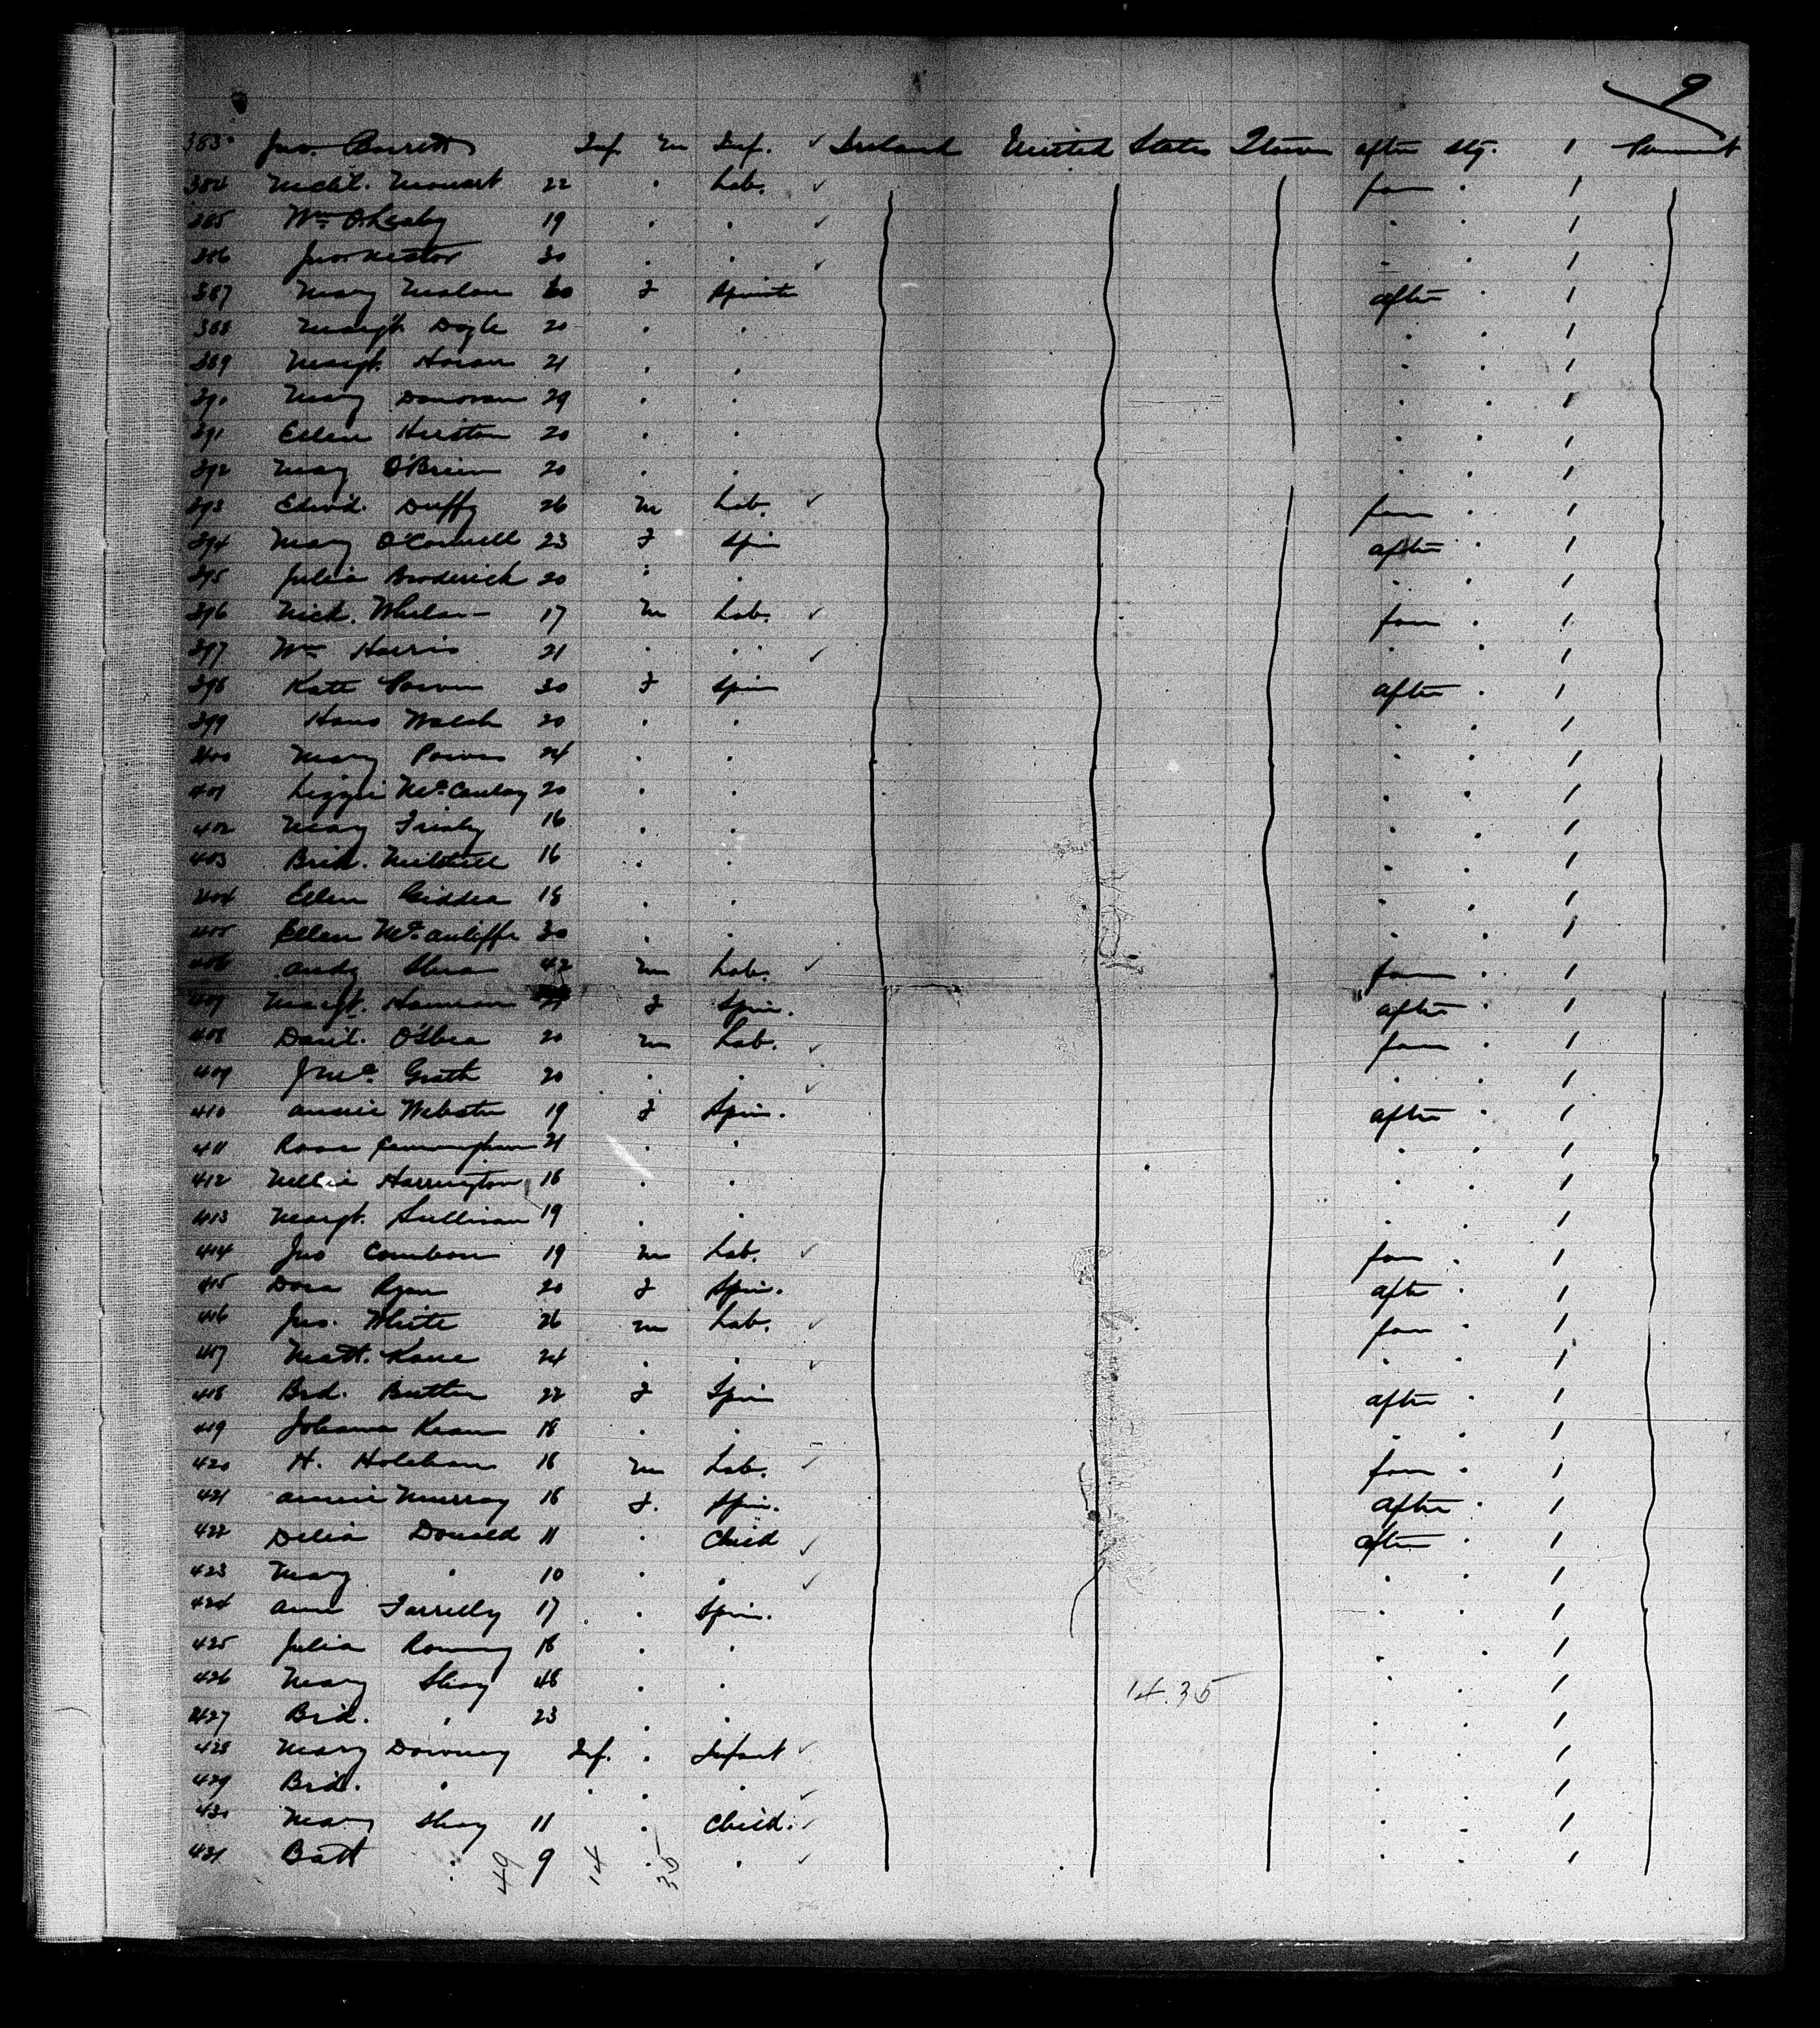 9
383 Jno. Barrett Inf. m Inf. ✓ Ireland United States Qtown after Stg. 1 Permant
384 Michl. 22 " Lab. ✓ for " 1
385 Wm O'Leahy 19 " " ✓ " " 1
386 Jno Nestor 30 " " ✓ " " 1
387 Mary Malon 30 F Spinster after " 1
388 Margt. Doyle 20 " " " " 1
389 Margt. Horan 21 " " " " 1
390 Mary Donovan 29 " " " " 1
391 Ellen 20 " " " " 1
392 Mary O'Brien 20 " " " " 1
393 Edwd. Duffy 26 m Lab. ✓ for " 1
394 Mary O'Connell 23 F Spin after " 1
395 Julia Broderick 20 " " " " 1
396 Mick. Whelan 17 m Lab. ✓ for " 1
397 Wm Harris 21 " " ✓ " " 1
398 Kate Power 30 F Spin after " 1
399 Hano Walsh 20 " " " " 1
400 Mary Power 24 " " " " 1
401 Lizzie McCaulay 20 " " " " 1
402 Mary 16 " " " " 1
403 Brid. Mitchell 16 " " " " 1
404 Ellen Giddea 18 " " " " 1
405 Ellen McAuliffe 30 " " " " 1
406 Andy Shea 42 m Lab. ✓ for " 1
407 Margt. Hannan F Spin. after " 1
408 Danl. O'Shea 20 m Lab. ✓ for " 1
409 J McGrath 20 " " ✓ " " 1
410 Annie Webster 19 F Spin. after " 1
411 Rose Cunningham 21 " " " " 1
412 Nellie Harrington 18 " " " " 1
413 Margt. Sullivan 19 " " " " 1
414 Jno 19 m Lab. ✓ for " 1
415 Dora Ryan 20 F Spin. afte " 1
416 Jno. White 26 m Lab. ✓ for " 1
417 Matt. Kane 24 " " ✓ " " 1
418 Brd. Butler 22 F Spin after " 1
419 Johanna Kean 18 " " " " 1
420 H. Holohan 18 m Lab. ✓ for " 1
421 Annie Murray 18 F. Spin. after " 1
422 Delia Donald 11 " Child ✓ after " 1
423 Mary " 10 " " ✓ " " 1
424 Anne Farrelly 17 " Spin. " " 1
425 Julia 18 " " " " 1
426 Mary Shay 48 " " 14.35 " " 1
427 Brd. " 23 " " " " 1
428 Mary Downey Inf. " Infant ✓ " " 1
429 Brd. " " " " ✓ " " 1
430 Mary Shay 11 " Child. ✓ " " 1
431 Batt " 9 " " ✓ " " 1
49 14 35